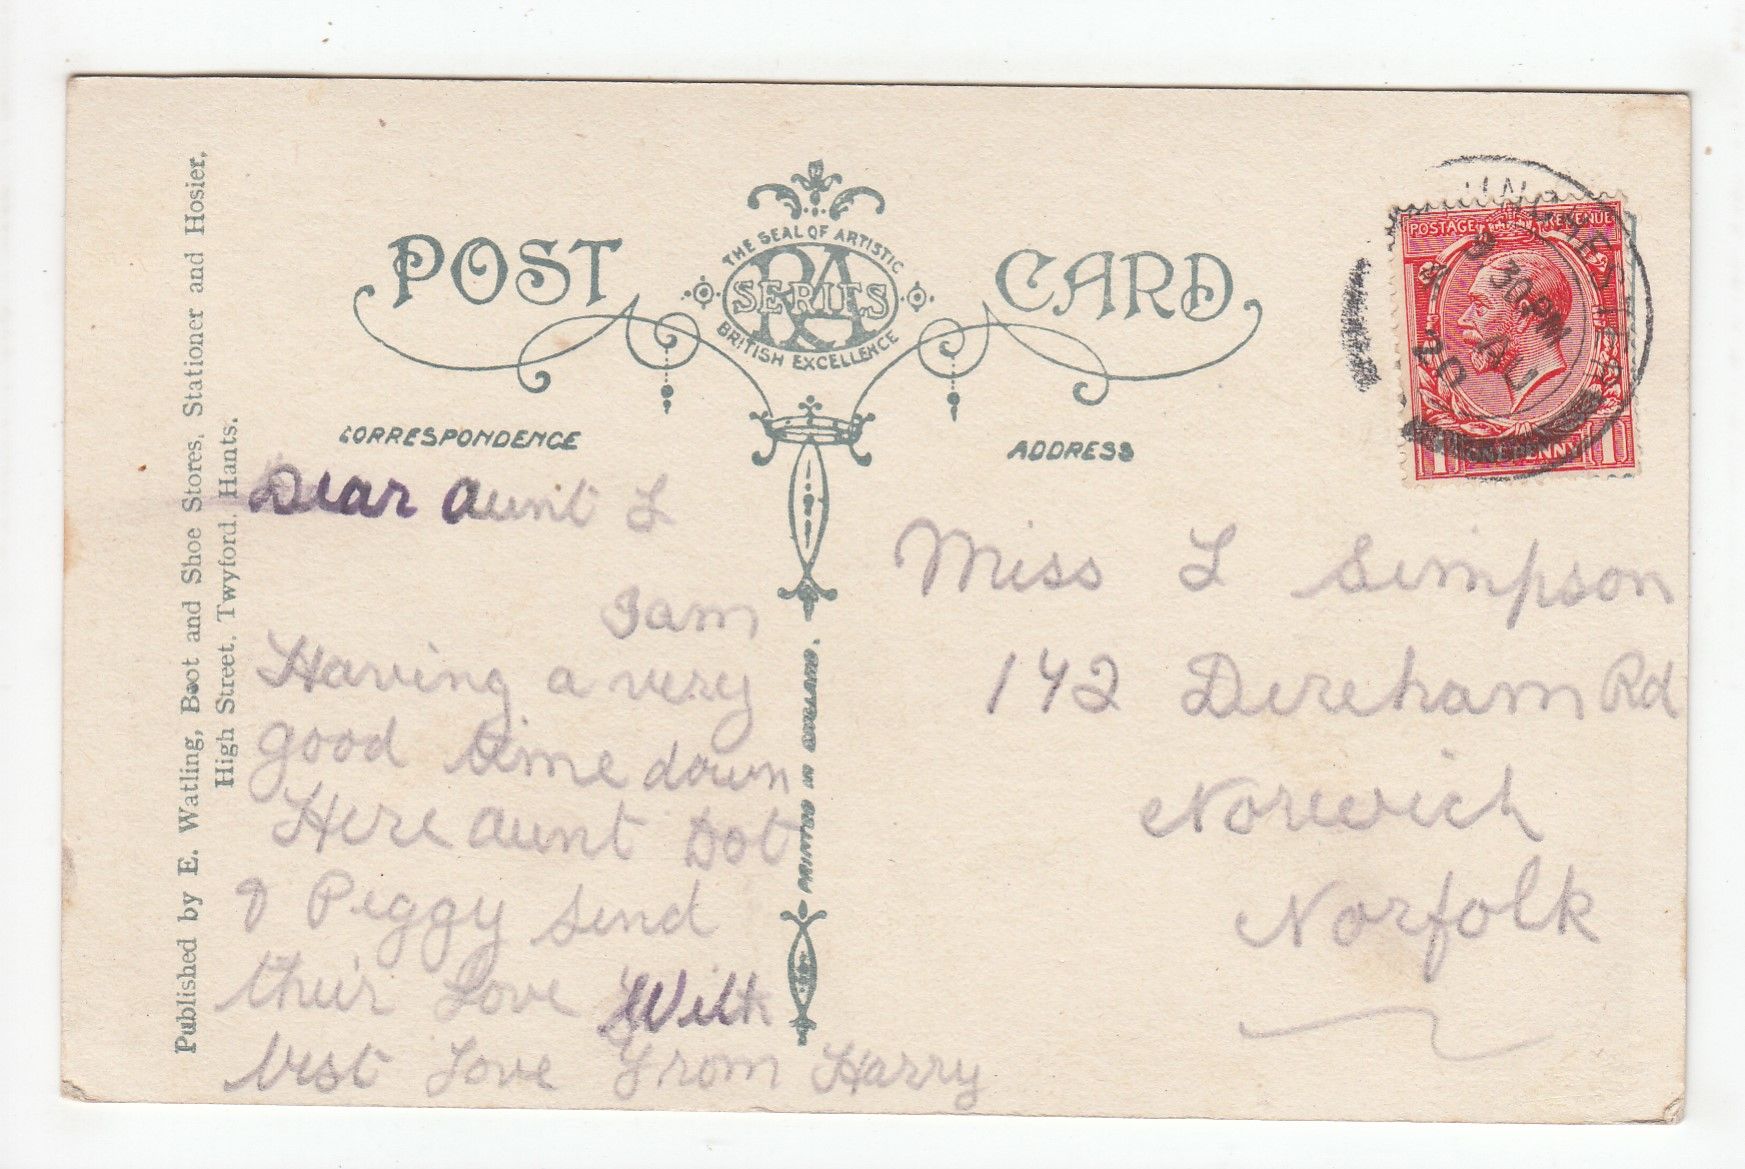 Published by E. Watling, Boot and Shoe Stores, Stationer and Hosier,
High Street, Twyford, Hants.
POST CARD
THE SEAL OF ARTISTIC
RA
SERIES
BRITISH EXCELLENCE
CORRESPONDENCE
ADDRESS
PRINTED IN ENGLAND.
Dear Aunt L
I am
Having a very
good time down
Here Aunt Dot
& Peggy send
their Love With
best Love From Harry
Miss L Simpson
142 Dereham Rd
Norwich
Norfolk
POSTAGE REVENUE
1 ONE PENNY 1
WINCHESTER
3 30 PM
AU
20